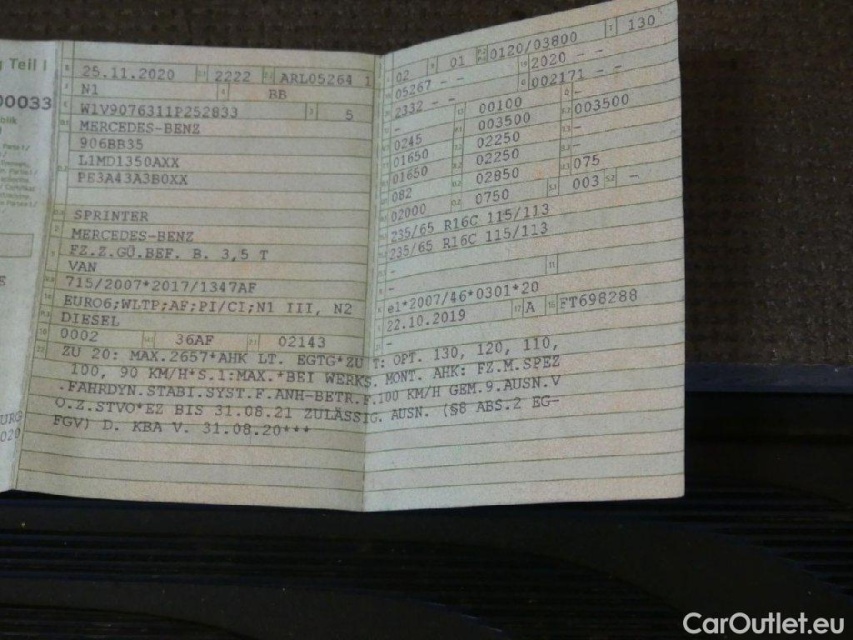 g Teil I
00033
25.11.2020 2222 ARL05264 1
N1 BB
W1V9076311P252833 5
MERCEDES-BENZ
906BB35
L1MD1350AXX
PE3A43A3B0XX
SPRINTER
MERCEDES-BENZ
FZ.Z.GÜ.BEF. B. 3,5 T
VAN
715/2007*2017/1347AF
EURO6;WLTP;AF;PI/CI;N1 III, N2
DIESEL
0002 36AF 02143
02 01 0120/03800 130
05267 - - 2020 - -
2332 - - 002171 - -
- 00100 -
0245 003500 003500
01650 02250 -
01650 02250 -
082 02850 075
02000 0750 003 -
235/65 R16C 115/113
235/65 R16C 115/113
-
-
e1*2007/46*0301*20
22.10.2019 A FT698288
-
ZU 20: MAX.2657*AHK LT. EGTG*ZU T: OPT. 130, 120, 110,
100, 90 KM/H*S.1:MAX.*BEI WERKS. MONT. AHK: FZ.M.SPEZ
.FAHRDYN.STABI.SYST.F.ANH-BETR.F.100 KM/H GEM.9.AUSN.V
O.Z.STVO*EZ BIS 31.08.21 ZULÄSSIG. AUSN. (§8 ABS.2 EG-
FGV) D. KBA V. 31.08.20***
URG
020
CarOutlet.eu